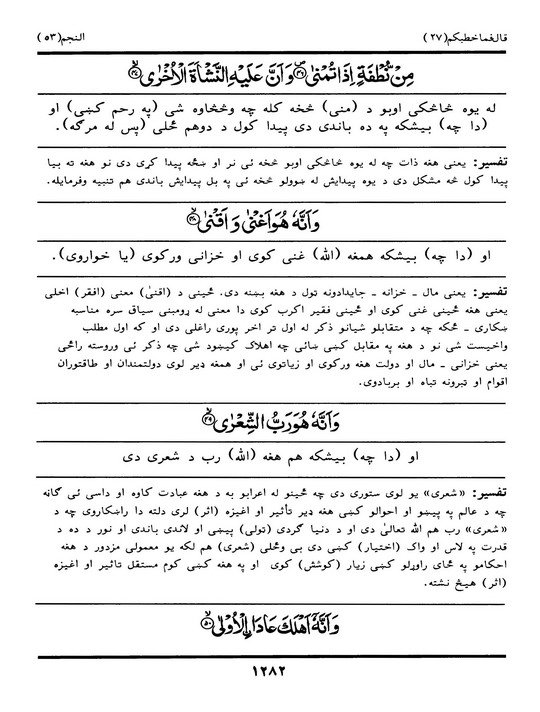 قال فما خطبکم (٢٧)
النجم (٥٣)
مِنْ نُّطْفَةٍ اِذَا تُمْنٰى ﴿٤٦﴾ وَاَنَّ عَلَيْهِ النَّشْاَةَ الْاُخْرٰى ﴿٤٧﴾
له یوه څاڅکي اوبو د (مني) څخه کله چه وڅڅاوه شي (په رحم کښي) او
(دا چه) بیشکه په ده باندي دی پیدا کول د دوهم ځلي (پس له مرګه).
تفسیر: یعني هغه ذات چه له یوه څاڅکي اوبو څخه ئي نر او ښځه پیدا کړی دی نو هغه ته بیا
پیدا کول څه مشکل دی د یوه پیدایش له ښوولو څخه ئي په بل پیدایش باندي هم تنبیه وفرمایله.
وَاَنَّهٗ هُوَ اَغْنٰى وَ اَقْنٰى ﴿٤٨﴾
او (دا چه) بیشکه همغه (الله) غني کوی او خزاني ورکوی (یا خواروی).
تفسیر: یعني مال ـ خزانه ـ جایدادونه ټول د هغه بښنه دی. ځیني د (اقنیٰ) معنی (افقر) اخلي
یعني هغه ځیني غني کوی او ځیني فقیر اکرب کوی دا معنی له ړومبني سیاق سره مناسبه
ښکاری ـ ځکه چه د متقابلو شیانو ذکر له اول تر اخر پوری راغلی دی او که اول مطلب
واخیست شي نو د هغه په مقابل کښي ښائي چه اهلاک کیښود شي چه ذکر ئي وروسته راځي
یعني خزاني ـ مال او دولت هغه ورکوی او زیاتوی ئي او همغه ډیر لوی دولتمندان او طاقتوران
اقوام او ټبرونه تباه او بربادوی.
وَاَنَّهٗ هُوَ رَبُّ الشِّعْرٰى ﴿٤٩﴾
او (دا چه) بیشکه هم هغه (الله) رب د شعری دی
تفسیر: «شعری» یو لوی ستوری دی چه ځینو له اعرابو به د هغه عبادت کاوه او داسي ئي ګاڼه
چه د عالم په پیښو او احوالو کښي هغه ډیر تأثیر او اغیزه (اثر) لری دلته دا راښکاروی چه د
«شعری» رب هم الله تعالیٰ دی او د دنیا ګردي (ټولي) پیښي او لاندي باندي او نور د ده د
قدرت په لاس او واک (اختیار) کښي دی بي وځلي (شعری) هم لکه یو معمولي مزدور د هغه
احکامو په ځای راوړلو کښي زیار (کوشش) کوی او په هغه کښي کوم مستقل تاثیر او اغیزه
(اثر) هیڅ نشته.
وَاَنَّهٗٓ اَهْلَكَ عَادَاِۨ الْاُوْلٰى ﴿٥٠﴾
١٢٨٢